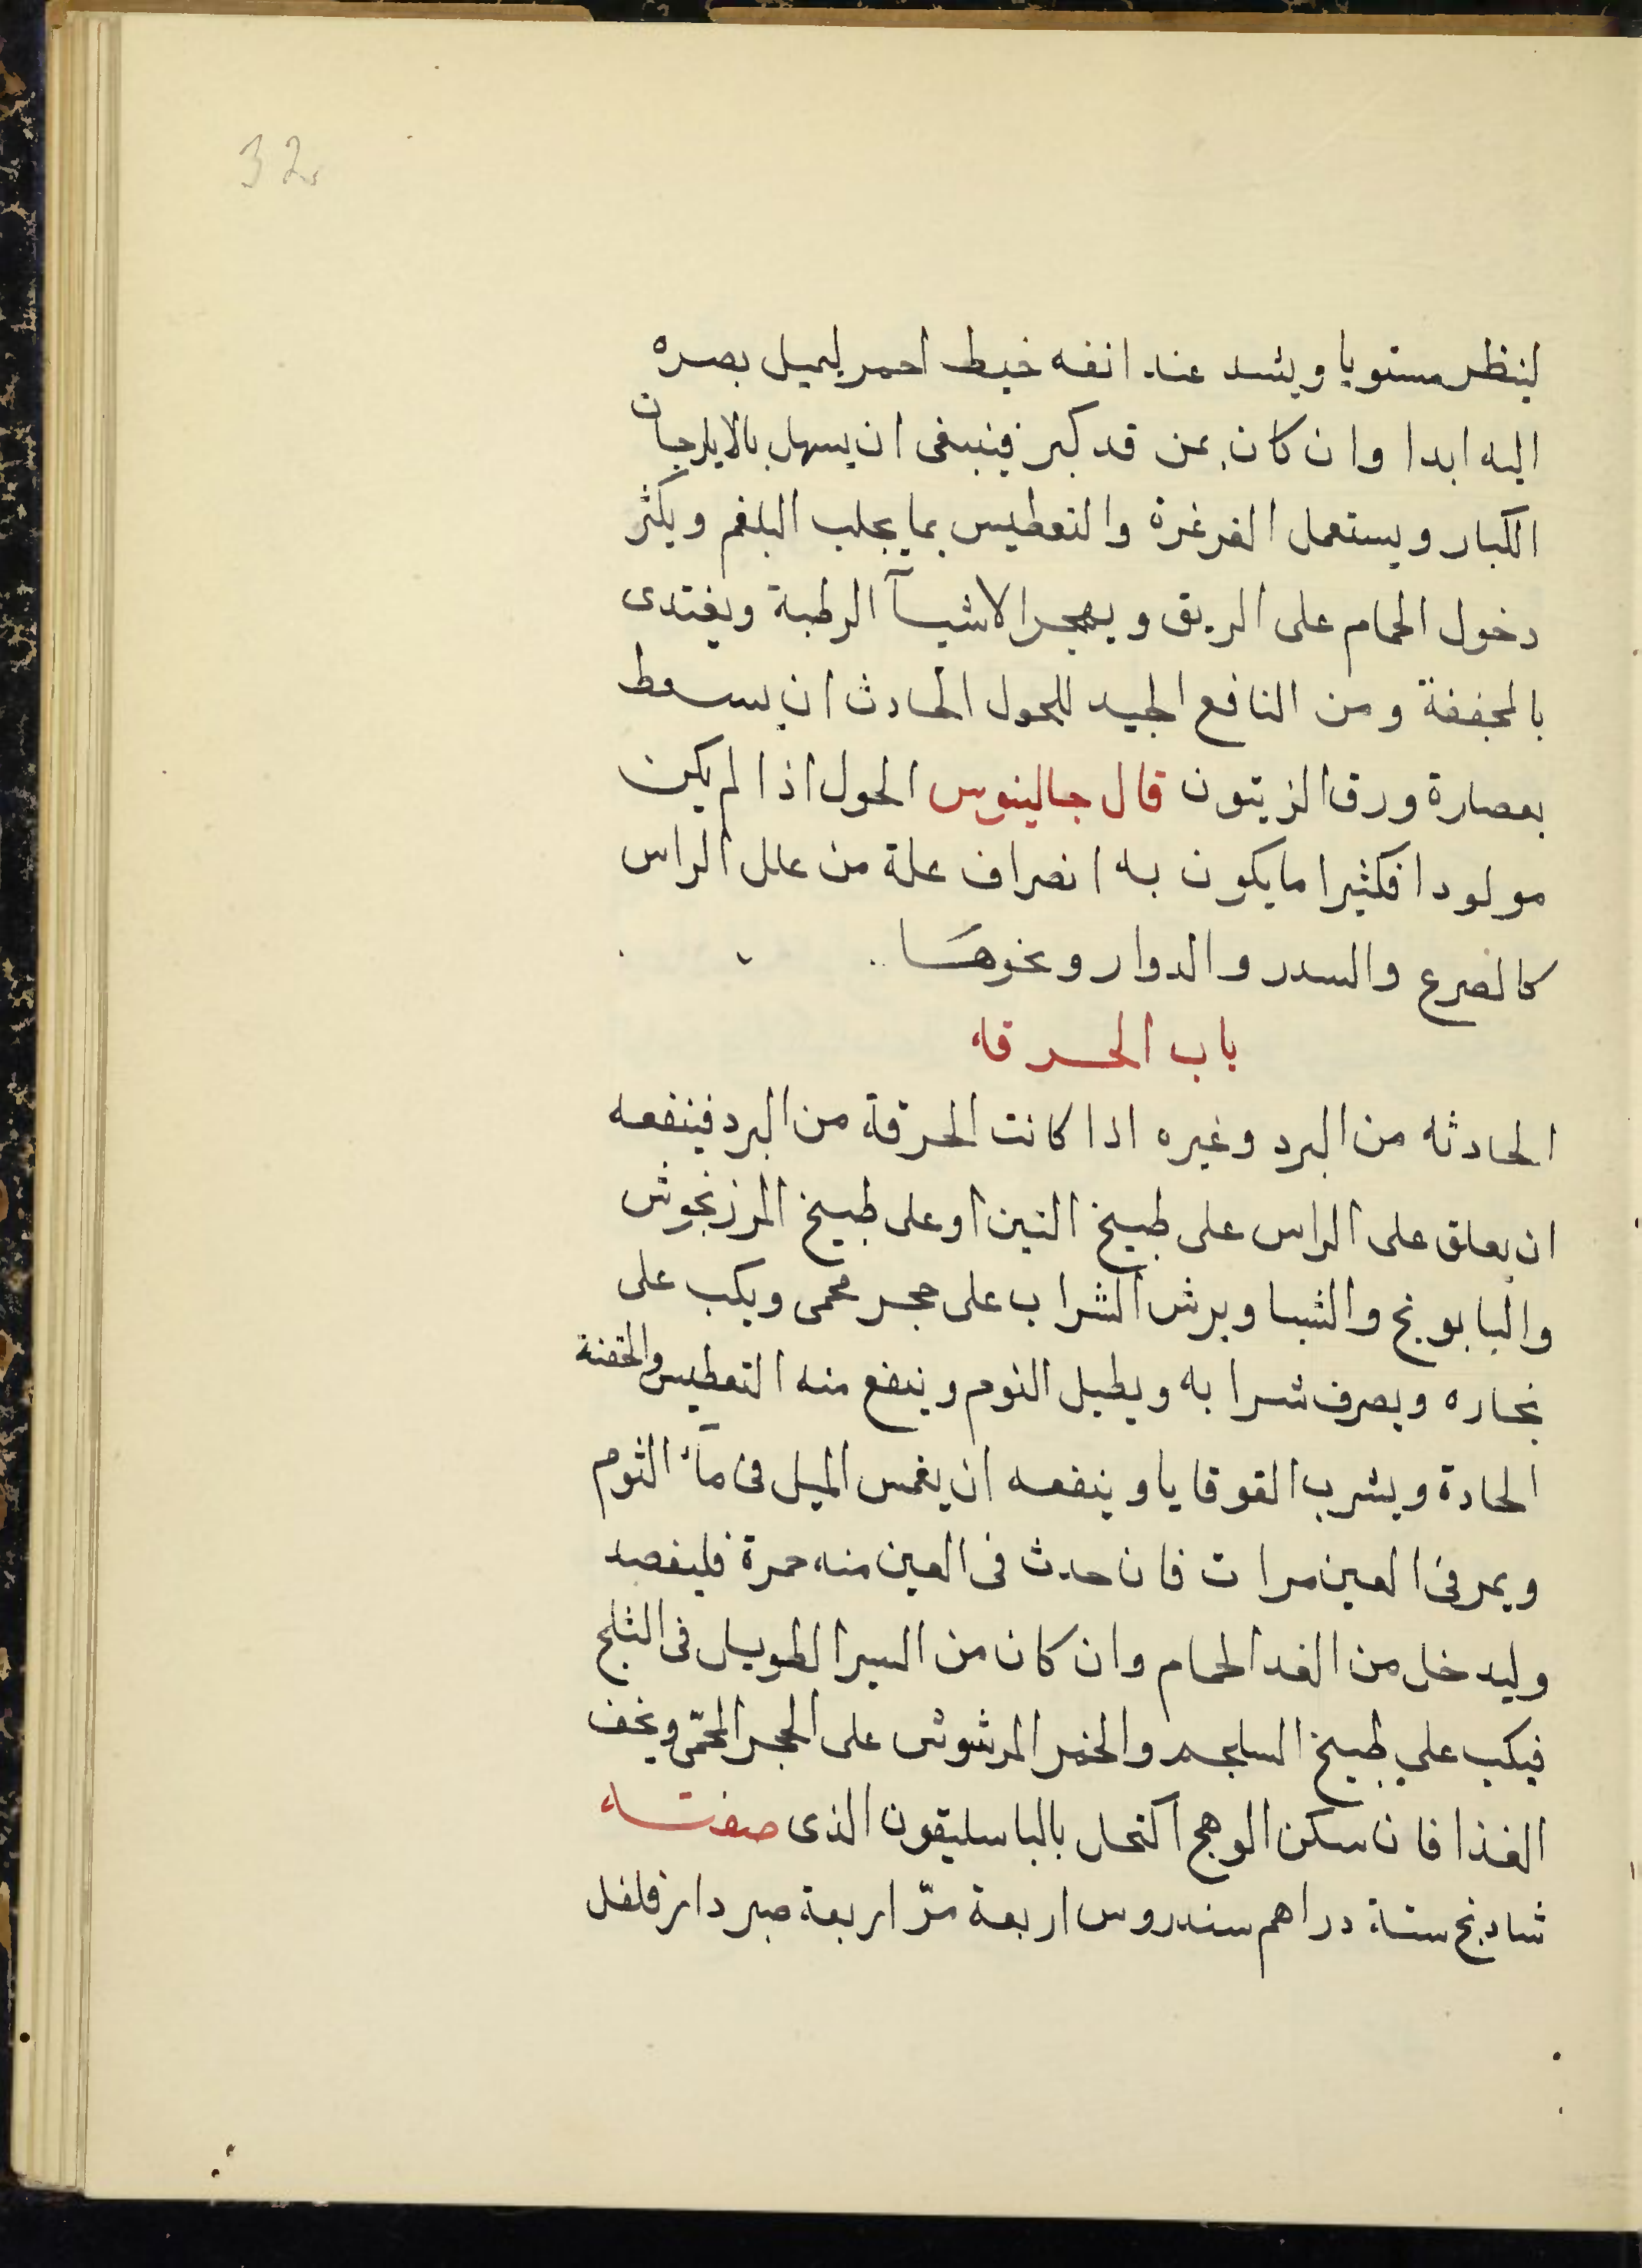 32
لينظر مستويا ويشد عند انفه خيط احمر ليميل بصره
اليه ابدا وان كان ممن قد كبر فينبغى ان يسهل بالايارجات
الكبار ويستعمل الغرغرة والتعطيس بما يجلب البلغم ويكثر
دخول الحمام على الريق ويهجر الاشيآ الرطبة ويغتدى
بالمجففة ومن النافع الجيد للحول الحادث ان يسعط
بعصارة ورق الزيتون قال جالينوس الحول اذا لم يكن
مولودا فكثيرا ما يكون به انصراف علة من علل الراس
كالصرع والسدر والدوار ونحوها
باب الحرقه
الحادثه من البرد وغيره اذا كانت الحرقة من البرد فينفعه
ان يعلق على الراس على طبيخ التين او على طبيخ المرزنجوش
والبابونج والشبا ويرش الشراب على حجر محمى ويكب على
بخاره ويصرف شرابه ويطيل النوم وينفع منه التعطيس والحقنة
الحادة ويشرب القوقايا وينفعه ان يغمس الميل فى مآء الثوم
ويمر فى العين مرات فان حدث فى العين منه حمرة فليفصد
وليدخل من الغد الحمام وان كان من السير الطويل فى الثلج
فيكب على طبيخ السلجم والخمر المرشوش على الحجر المحمّى ويخف
الغذا فان سكن الوهج اكتحل بالباسليقون الذى صفته
شادنج ستة دراهم سندروس اربعة مرّ اربعة صبر دارفلفل